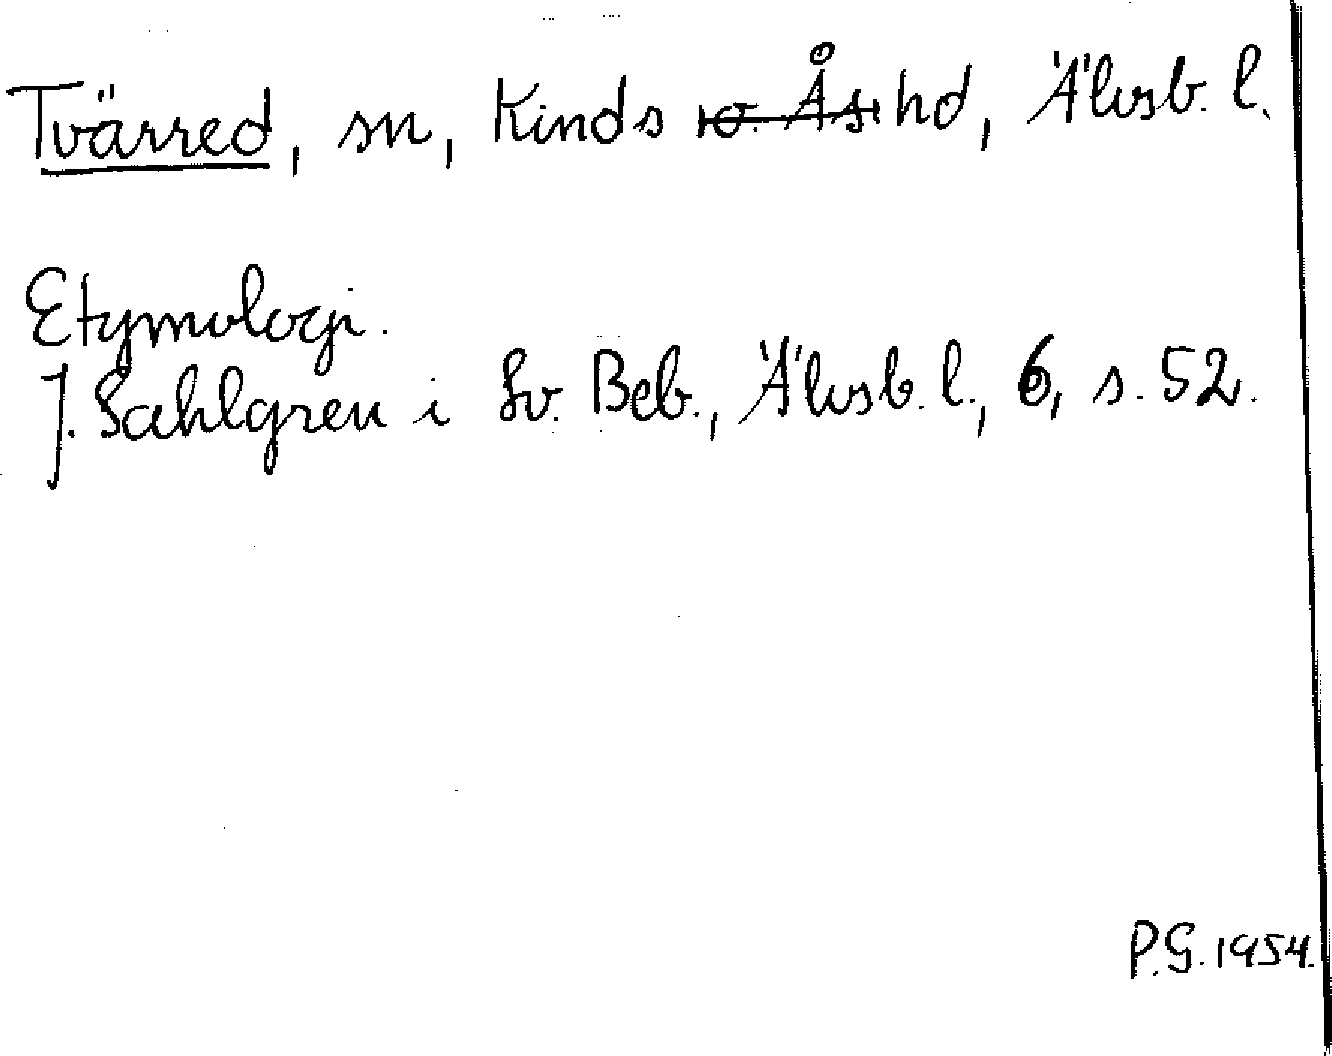 Tvärred, sn, Kinds o. Ås hd, Älvsb. l.
Etymologi.
J. Sahlgren i Sv. Beb., Älvsb. l., 6, s. 52.
P.G. 1954.